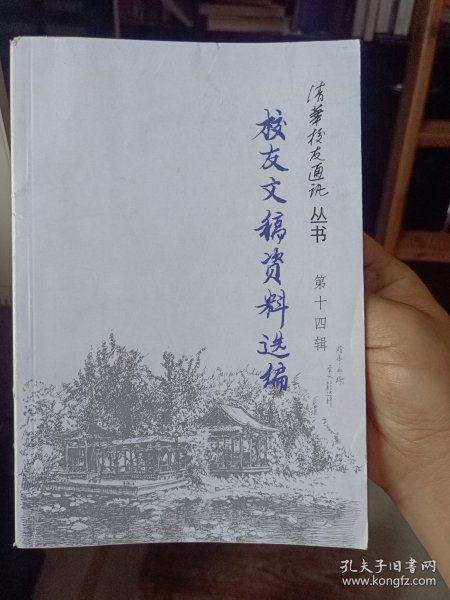 清華校友通讯 丛书 第十四辑
校友文稿资料选编
孔夫子旧书网
www.kongfz.com